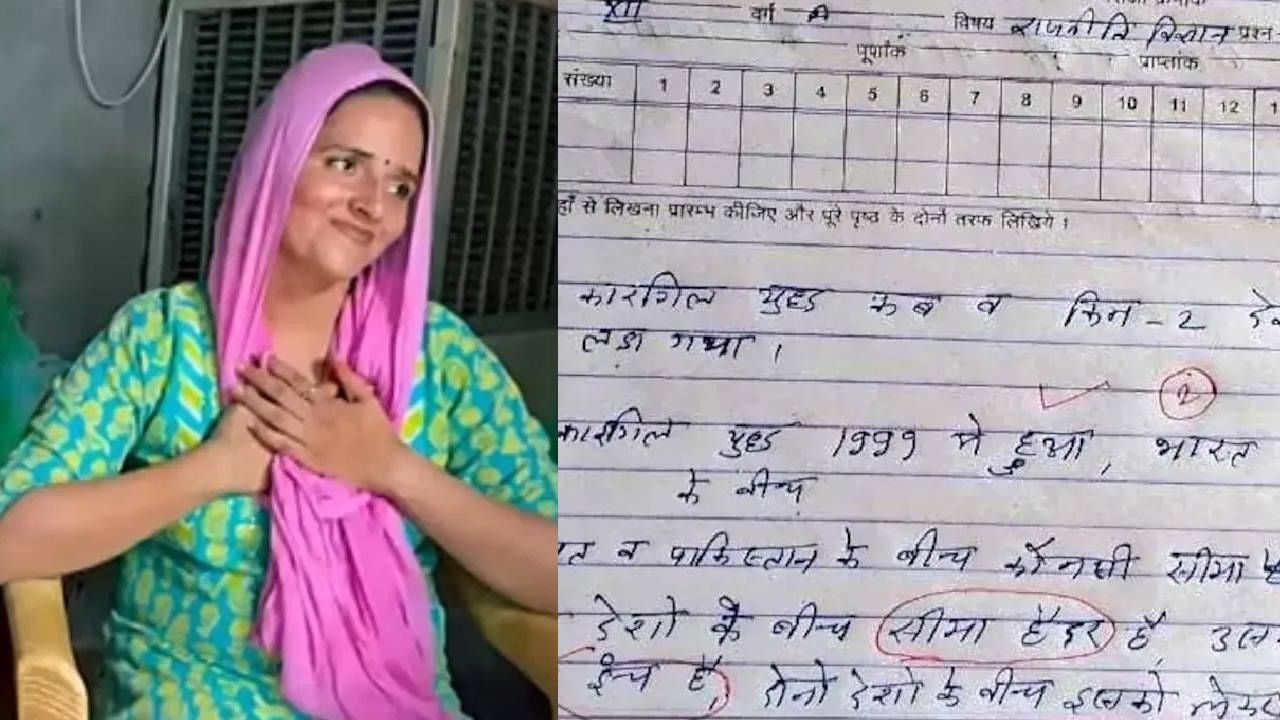 XII वर्ग A विषय राजनीति विज्ञान प्रश्न
पूर्णांक प्राप्तांक
संख्या 1 2 3 4 5 6 7 8 9 10 11 12
से लिखना प्रारम्भ कीजिए और पूरे पृष्ठ के दोनों तरफ लिखिये ।
कारगिल युद्ध कब व किन-2
लडा गया ।
2
कारगिल युद्ध 1999 मे हुआ, भारत
के बीच
व पाकिस्तान के बीच कौनसी सीमा
देशो के बीच सीमा हैदर है
इन्च है, दोनो देशो के बीच इसको लेकर